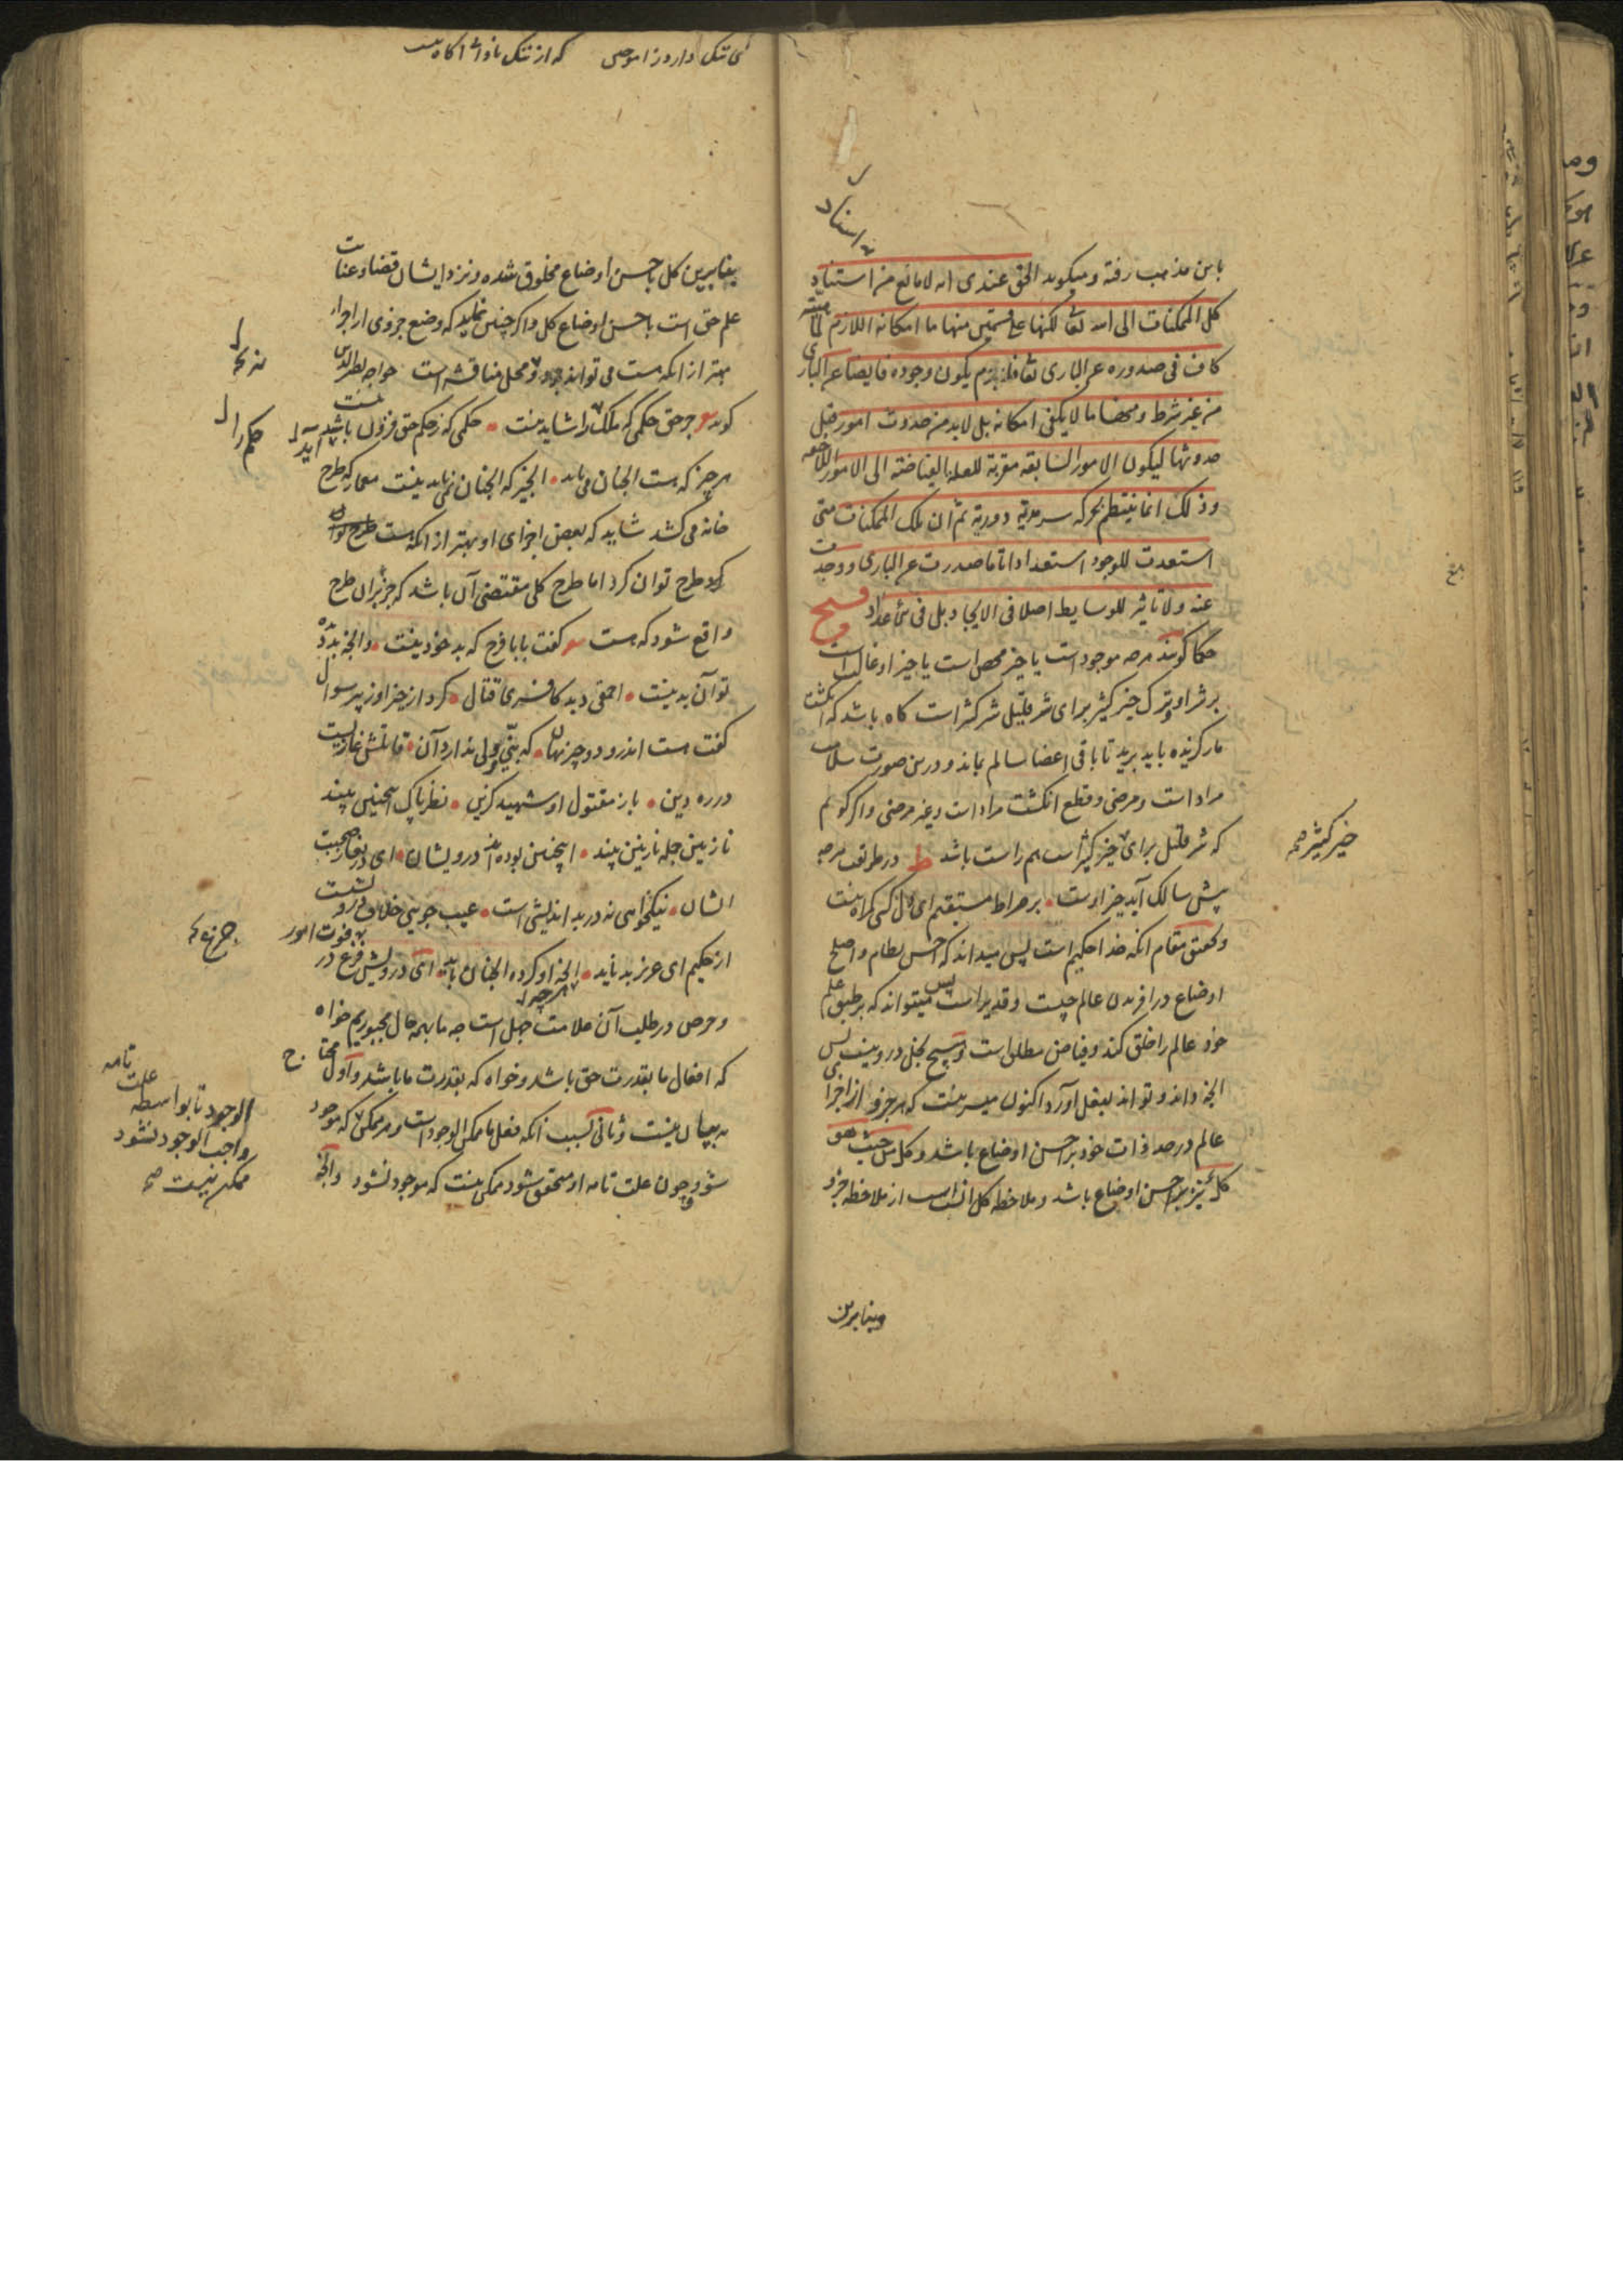 باین مذهب رفته و میکوید الحق عندی انه لا مانع من استناد
کل الممکنات الی الله تعا لکنها علی قسمین منها ما امکانه اللازم لماهیته
کاف فی صدوره عن الباری تعا فلا جرم یکون وجوده فایضا عن الباری
من غیر شرط و منها ما لا یکفی امکانه بل لابد من حدوث امور قبل
حدوثها لیکون الامور السابقه مقربة للعلة الفیاضة الی الامور اللاحقه
وذلک انما ینتظم بحرکه سرمدیه دوریه ثم ان تلک الممکنات متی
استعدت للوجود استعدادا تاما صدرت عن الباری و وجدت
عنه ولا تاثیر للوسایط اصلا فی الایجاد بل فی الاعداد
حکما کویند هرچه موجود است یا خیر محض است یا خیر او غالب است
بر شر او و ترک خیر کثیر برای شر قلیل شر کثیر است کاه باشد که انکشت
مار کزیده باید برید تا باقی اعضا سالم بماند و درین صورت سلامت
مراد است و مرضی و قطع انکشت مراد است و غیر مرضی و اکر کویم
که شر قلیل برای خیر کثیر است هم راست باشد ط در طریقت هرچه
پیش سالک آید خیر اوست بر صراط مستقیم ای دل کسی کمراه نیست
و تحقیق مقام انکه خدا حکیم است پس میداند که احسن نظام و اصلح
اوضاع در افریدن عالم چیست و قدیر است پس میتواند که بر طبق علم
خود عالم را خلق کند و فیاض مطلق است و هیچ بخل درو نیست پس
انچه داند و تواند بفعل آورد اکنون میسر نیست که هر جزو از اجزا
عالم در حد ذات خود بر احسن اوضاع باشد و کل من حیث هو
کل نیز بر احسن اوضاع باشد و ملاحظه کل انسب است از ملاحظه جزو
وبنابرین
خیر کثیر صح
بنابرین کل باحسن اوضاع مخلوق شده و نزد ایشان قضا و عنایت
علم حق است باحسن اوضاع کل و اکر چنین نکند که وضع جزوی از اجزا
بهتر از انکه هست می تواند بود محل مناقشه است خواجه نصیر الدین
کوید جز حق حکمی که ملک را شاید نیست حکمی که ز حکم حق فزون باشد نیست
هر چیز که هست انچنان می باید انچیز که انچنان نمی باید نیست معمار که طرح
خانه می کشد شاید که بعضی اجزای او بهتر از انکه هست طرح توان
کرد طرح توان کرد اما طرح کلی مقتضی آن باشد که جزء بران طرح
واقع شود که هست گفت بابا فرج که بد خود نیست وانچه بد دیده
تو آن بد نیست احمقی دید کافری قتال کرد از خیر او ز پیر سوال
کفت هست اندرو دو چیز نهان که نبی و ولی ندارد آن قاتلش غازیست
در ره دین باز مقتول او شهید کزین نظر پاک اینچنین بیند
نازنین جمله نازنین بیند اینچنین بوده اند درویشان ای دریغا ز صحبت
ایشان نیکخواهی نه در بد اندیشی است عیب جویی خلاف درویشیست
از حکیم ای عزیز بد ناید هرچه او کرده انچنان باید ای درویش جزع در
و حرص در طلب آن علامت جهل است چه ما بهمه حال مجبوریم خواه
که افعال ما بقدرت حق باشد و خواه که بقدرت ما باشد و اول محتاج
به بیان نیست و ثانی بسبب آنکه فعل ما ممکن الوجود است و هر ممکن که موجود
شود و چون علت تامه او متحقق شود ممکن نیست که موجود نشود وانچه
فوت امور
علت تامه
الوجود تا بواسطه
واجب الوجود نشود
ممکن نیست صح